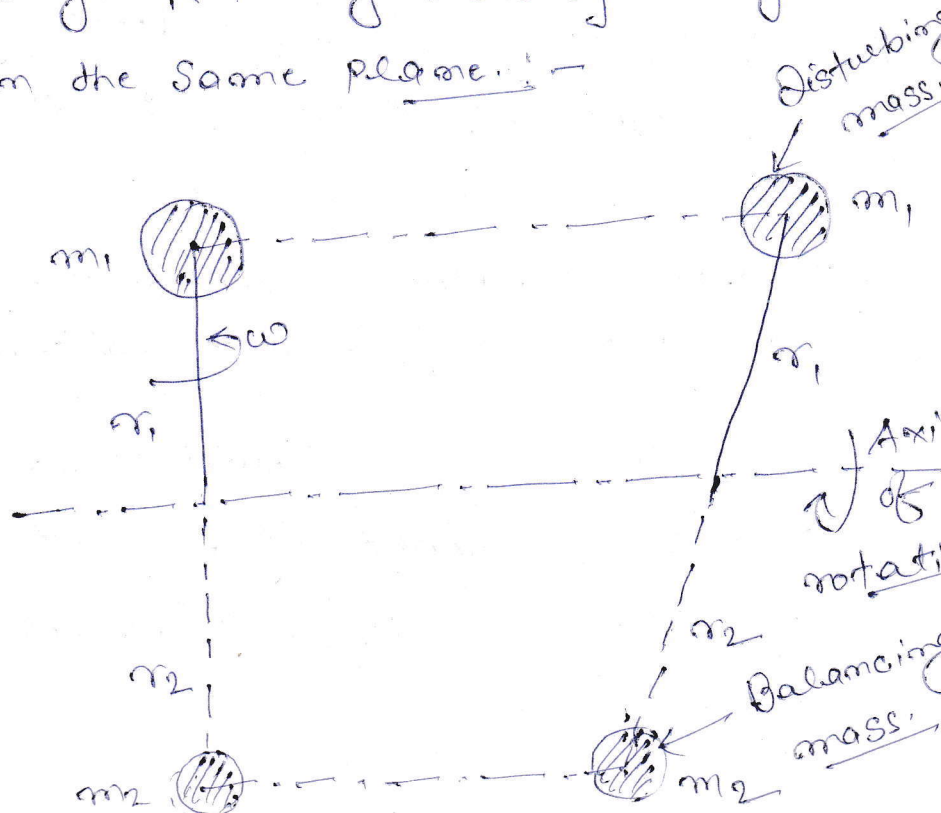 in the same plane. :-
Disturbing
mass.
m1
m1
ω
r1
r1
Axi
of
rotati
r2
r2
Balancing
mass.
m2
m2